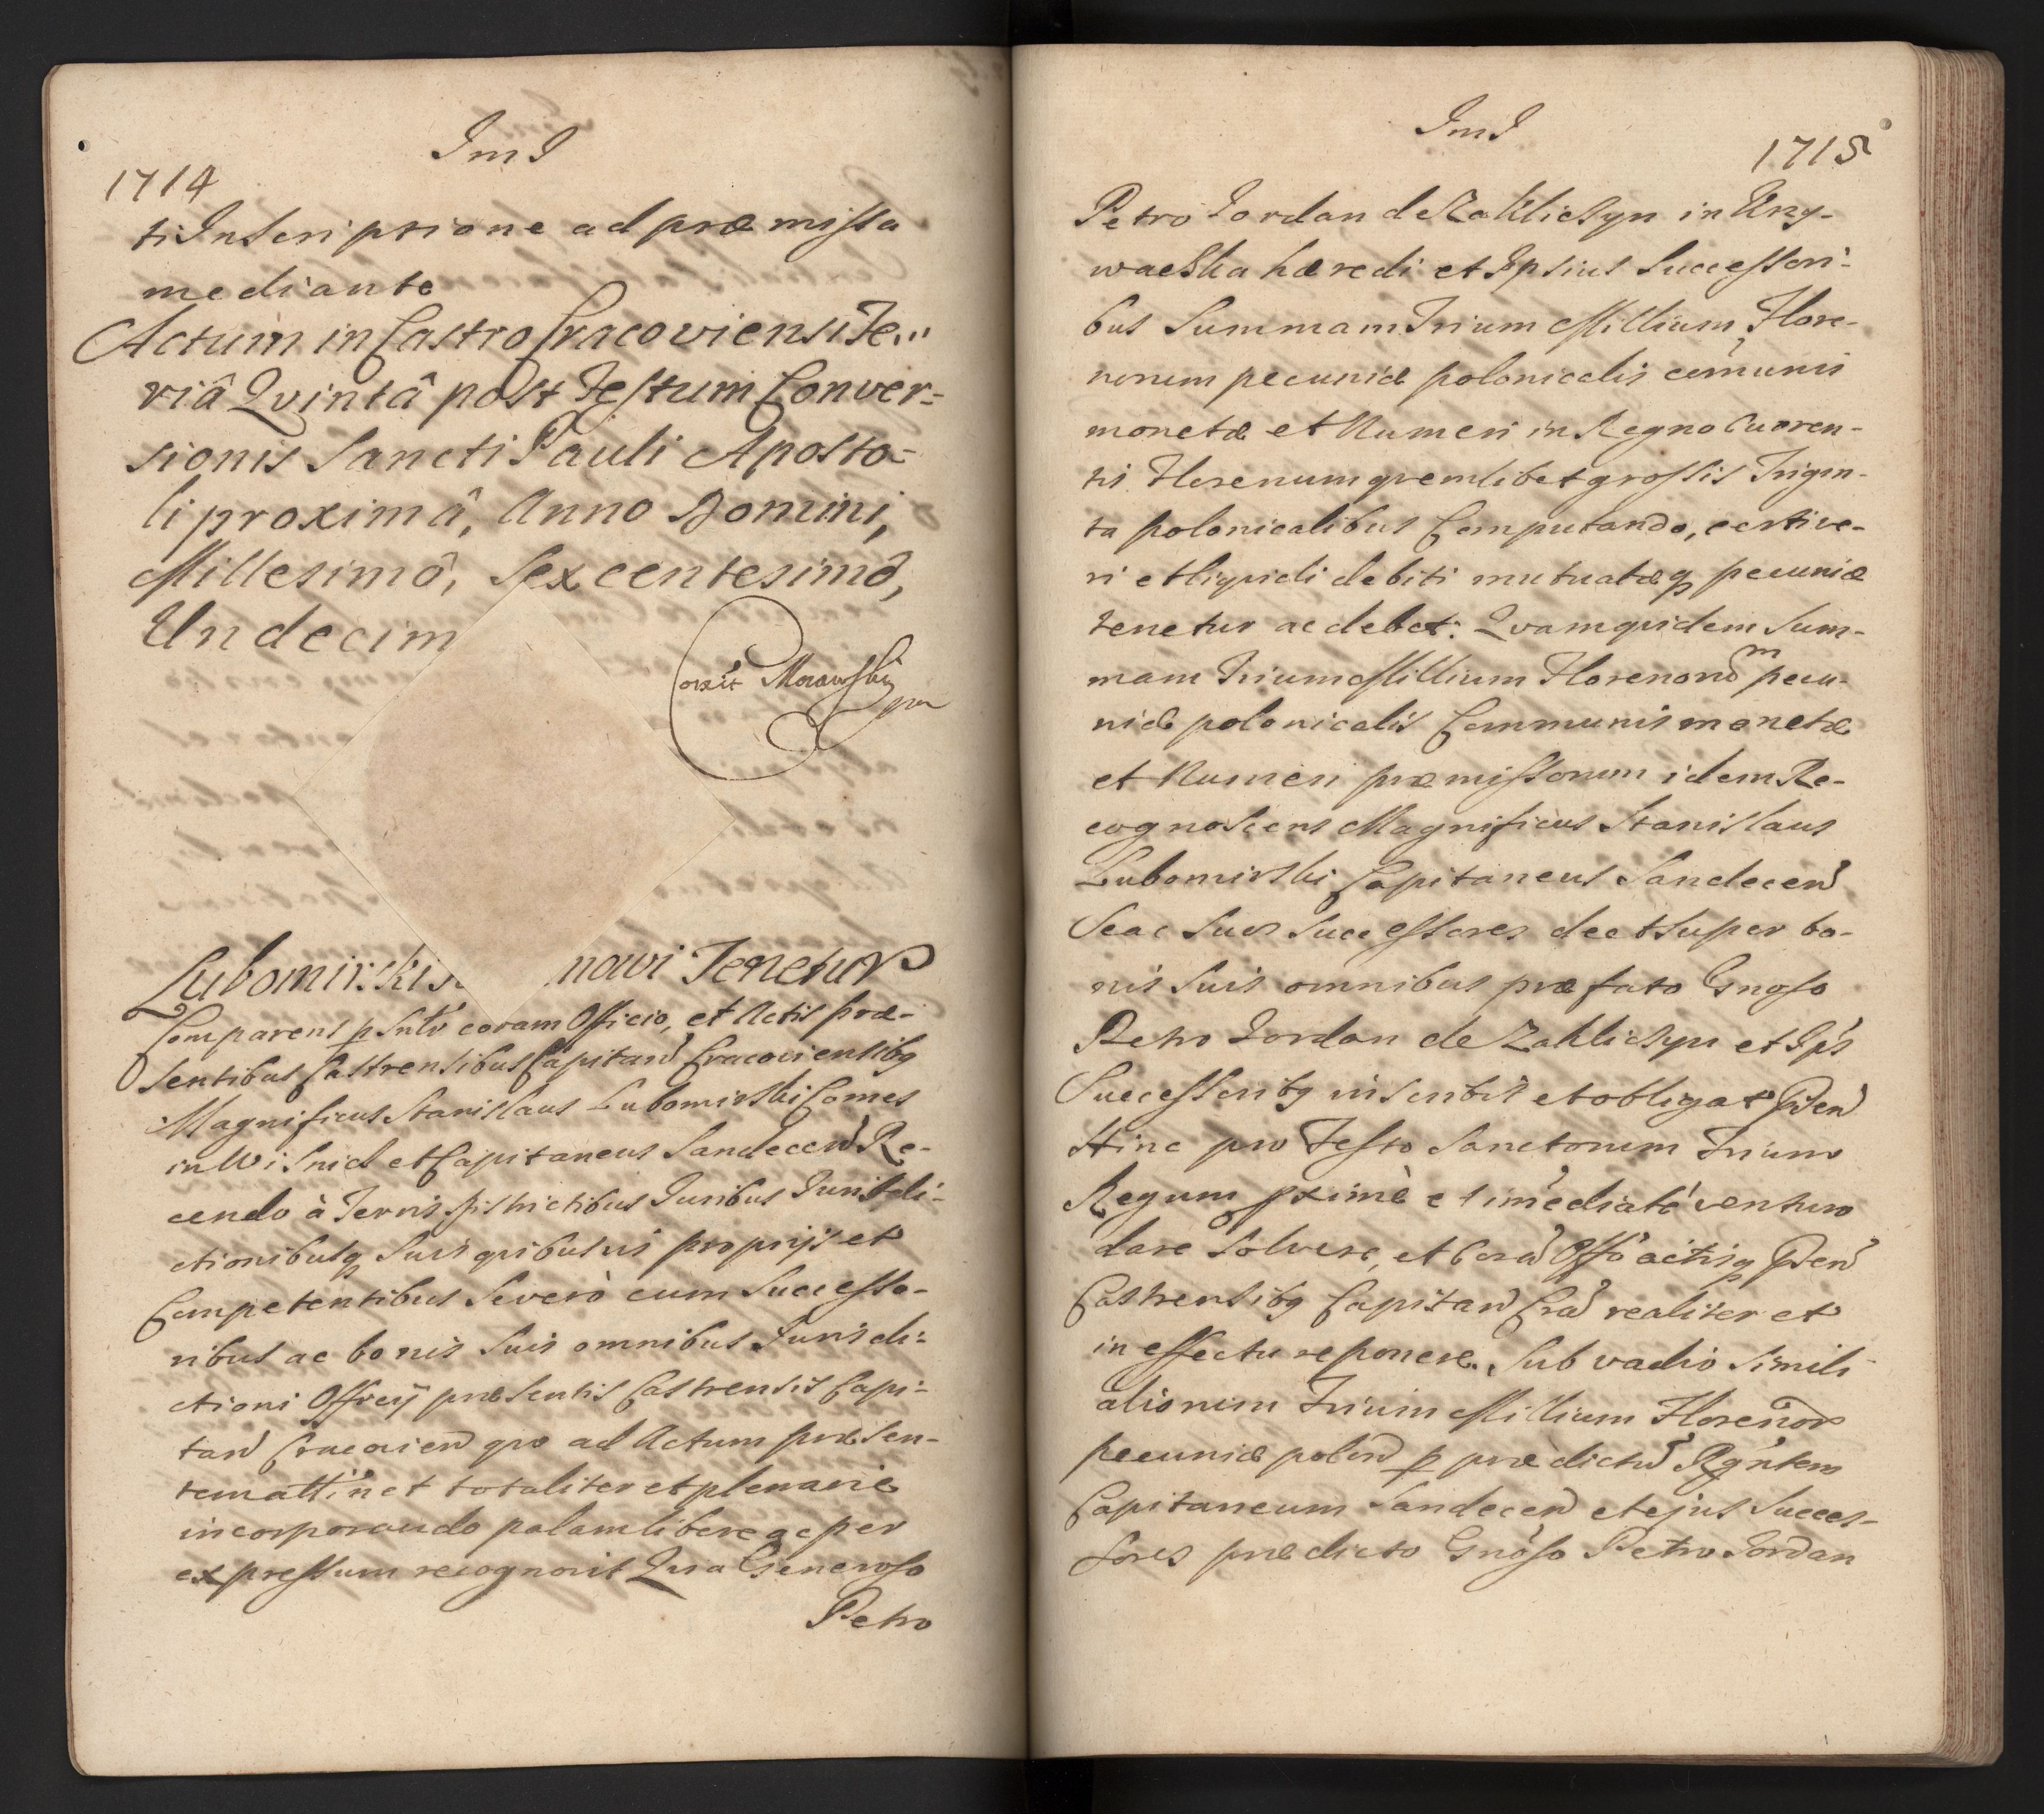 ImI
1714
ti Inscriptione ad præmissa
mediante
Actum in Castro Cracoviensi Fe„
riâ Qvintâ post Festum Conver-
sionis Sancti Pauli Aposto-
li proximâ, Anno Domini,
Millesimô, Sexcentesimô,
Undecim
Corrxit Morawski
mpr
Lubomirski nowi Tenetur
Comparens p̱sntr coram Officio, et Actis præ-
sentibus Castrensibus Capitan̄ Cracoviensibq
Magnificus Stanislaus Lubomirski Comes
in Wisnicz et Capitaneus Sandecen̄ Re-
cendo à Terris Districtibus Juribus Jurisdi-
ctionibusq̨ suis qvibusvis proprijs et
Competentibus Severò cum Successo-
ribus ac bonis suis omnibus Jurisdi-
ctioni Officij præsentis Castrensis Capi-
tan̄ Cracovien̄ qvo ad Actum præsen-
tem atti̇net totaliter et plenarie
incorporando palam libere ac per
expressum recognovit Qvia Generoso
Petro
ImI
1715
Petro Jordan de Zakliczyn in
hæredi et Ipsius Successori-
bus Summam Trium Millium Flore-
norum pecuniæ polonicalis com̄unis
monetæ et Numeri in Regno Curren-
tis Florenum qvemlibet grossis Trigin-
ta polonicalibus Computando, certi ve-
ri et liqvidi debiti mutuatæq̨ pecuniæ
tenetur ac debet: Qvamqvidem Sum-
mam Trium Millium Florenorum pecu-
niæ polonicalis Communis monetæ
et Numeri præmissorum idem Re-
cognoscens Magnificus Stanislaus
Lubomirski Capitaneus Sandecen̄
Se ac Suos Successores de et super bo-
nis suis omnibus præfato Gnoso
Petro Jordan de Zakliczyn et Ips̄
Successoribq inscribit et obligat Psen̄
Hinc pro Festo Sanctorum Trium
Regum pximè et im̄ediatè venturo
dare solvere, et Corā Offo actisq̨ Psen̄
Castrensibq Capitan̄ Crā realiter et
in effectu reponere. Sub vadio simili
aliorum Trium Millium Florenor̄
pecuniæ polon̄ p̱ prædictū Rgn̄tem
Capitaneum Sandecen̄ et ejus Succes-
sores prædicto Gnoso Petro Jordan